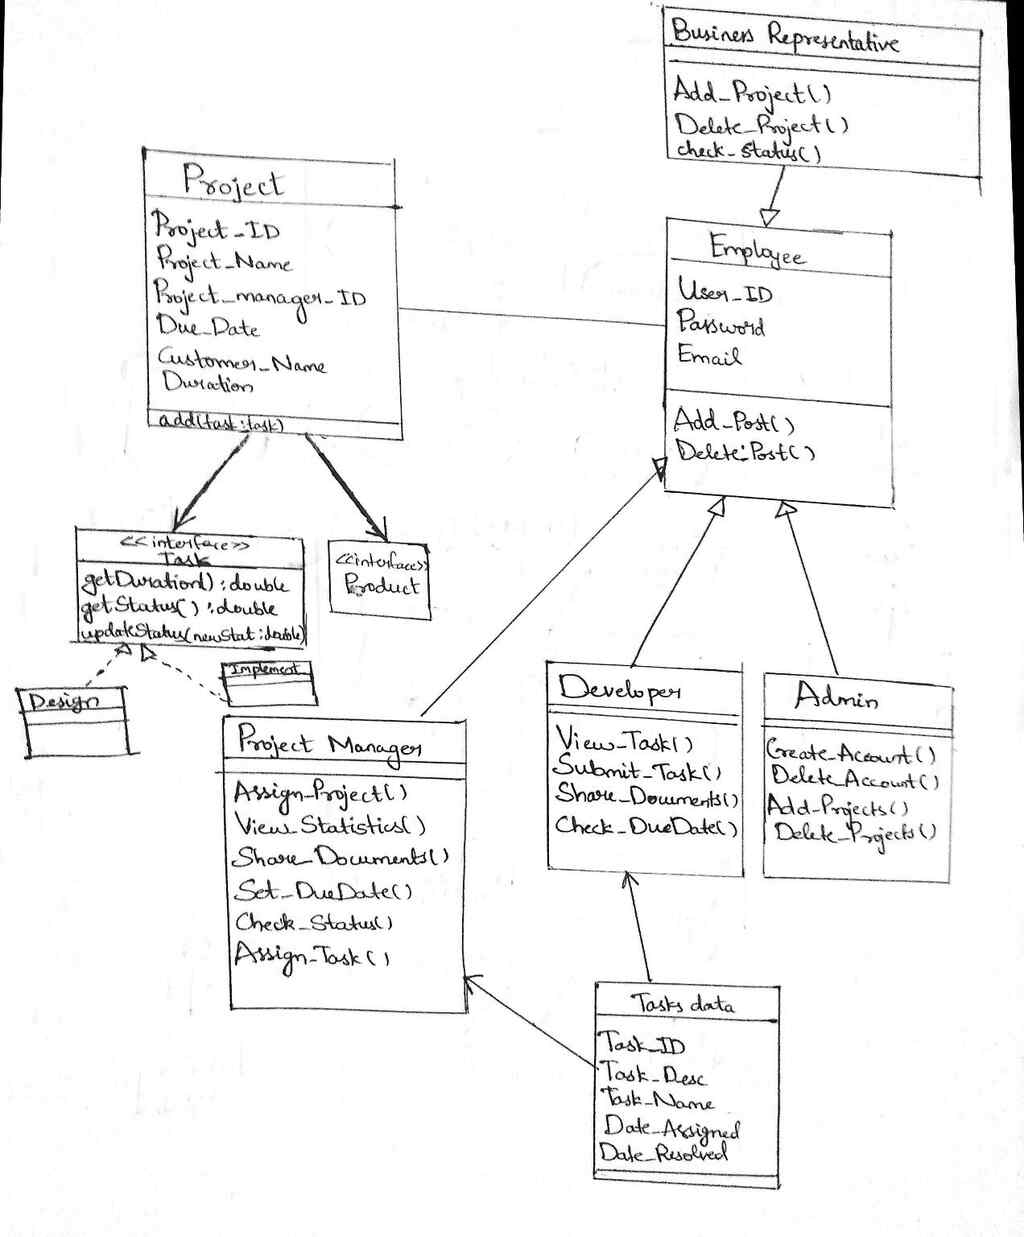 Business Representative
Add_Project()
Delete_Project()
check_status()
Project
Project_ID
Project_Name
Project_manager_ID
Due_Date
Customer_Name
Duration
add(task:task)
Employee
User_ID
Password
Email
Add_Post()
Delete_Post()
<<interface>>
Task
getDuration():double
getStatus():double
updateStatus(newStat:double)
<<interface>>
Product
Design
Implement
Project Manager
Assign_Project()
View_Statistics()
Share_Documents()
Set_DueDate()
Check_Status()
Assign_Task()
Developer
View_Task()
Submit_Task()
Share_Documents()
Check_DueDate()
Admin
Create_Account()
Delete_Account()
Add_Projects()
Delete_Projects()
Tasks data
Task_ID
Task_Desc
Task_Name
Date_Assigned
Date_Resolved